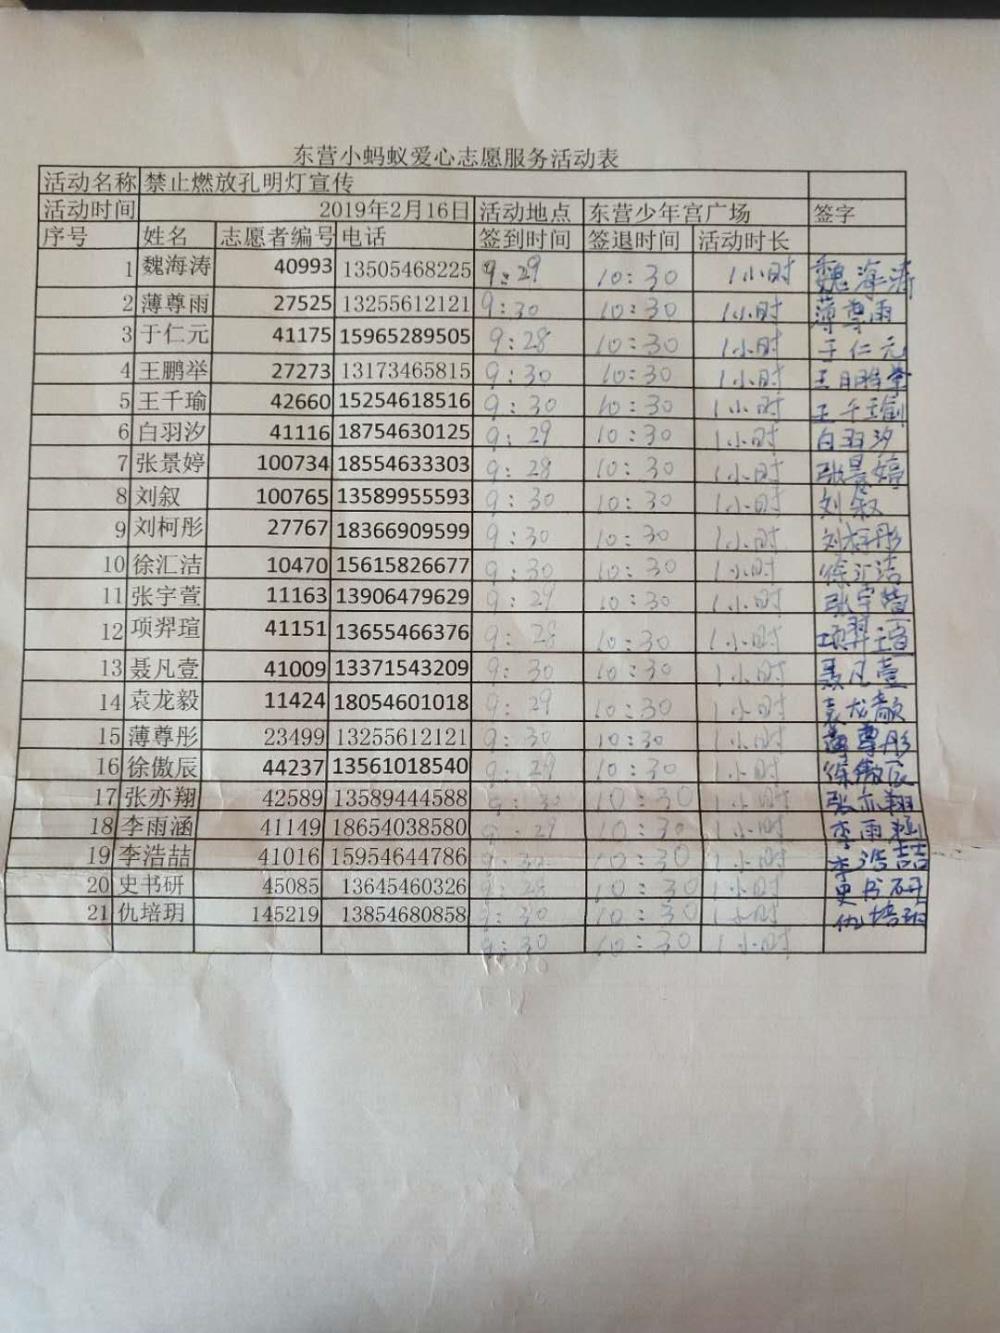 东营小蚂蚁爱心志愿服务活动表
活动名称 禁止燃放孔明灯宣传
活动时间 2019年2月16日 活动地点 东营少年宫广场 签字
序号 姓名 志愿者编号 电话 签到时间 签退时间 活动时长
1 魏海涛 40993 13505468225 9:29 10:30 1小时 魏海涛
2 薄尊雨 27525 13255612121 9:30 10:30 1小时 薄尊雨
3 于仁元 41175 15965289505 9:28 10:30 1小时 于仁元
4 王鹏举 27273 13173465815 9:30 10:30 1小时 王鹏举
5 王千瑜 42660 15254618516 9:30 10:30 1小时 王千瑜
6 白羽汐 41116 18754630125 9:29 10:30 1小时 白羽汐
7 张景婷 100734 18554633303 9:28 10:30 1小时 张景婷
8 刘叙 100765 13589955593 9:30 10:30 1小时 刘叙
9 刘柯彤 27767 18366909599 9:30 10:30 1小时 刘柯彤
10 徐汇洁 10470 15615826677 9:30 10:30 1小时 徐汇洁
11 张宇萱 11163 13906479629 9:29 10:30 1小时 张宇萱
12 项羿瑄 41151 13655466376 9:28 10:30 1小时 项羿瑄
13 聂凡壹 41009 13371543209 9:30 10:30 1小时 聂凡壹
14 袁龙毅 11424 18054601018 9:29 10:30 1小时 袁龙毅
15 薄尊彤 23499 13255612121 9:30 10:30 1小时 薄尊彤
16 徐傲辰 44237 13561018540 9:29 10:30 1小时 徐傲辰
17 张亦翔 42589 13589444588 9:30 10:30 1小时 张亦翔
18 李雨涵 41149 18654038580 9:29 10:30 1小时 李雨涵
19 李浩喆 41016 15954644786 9:30 10:30 1小时 李浩喆
20 史书研 45085 13645460326 9:28 10:30 1小时 史书研
21 仇培玥 145219 13854680858 9:30 10:30 1小时 仇培玥
9:30 10:30 1小时